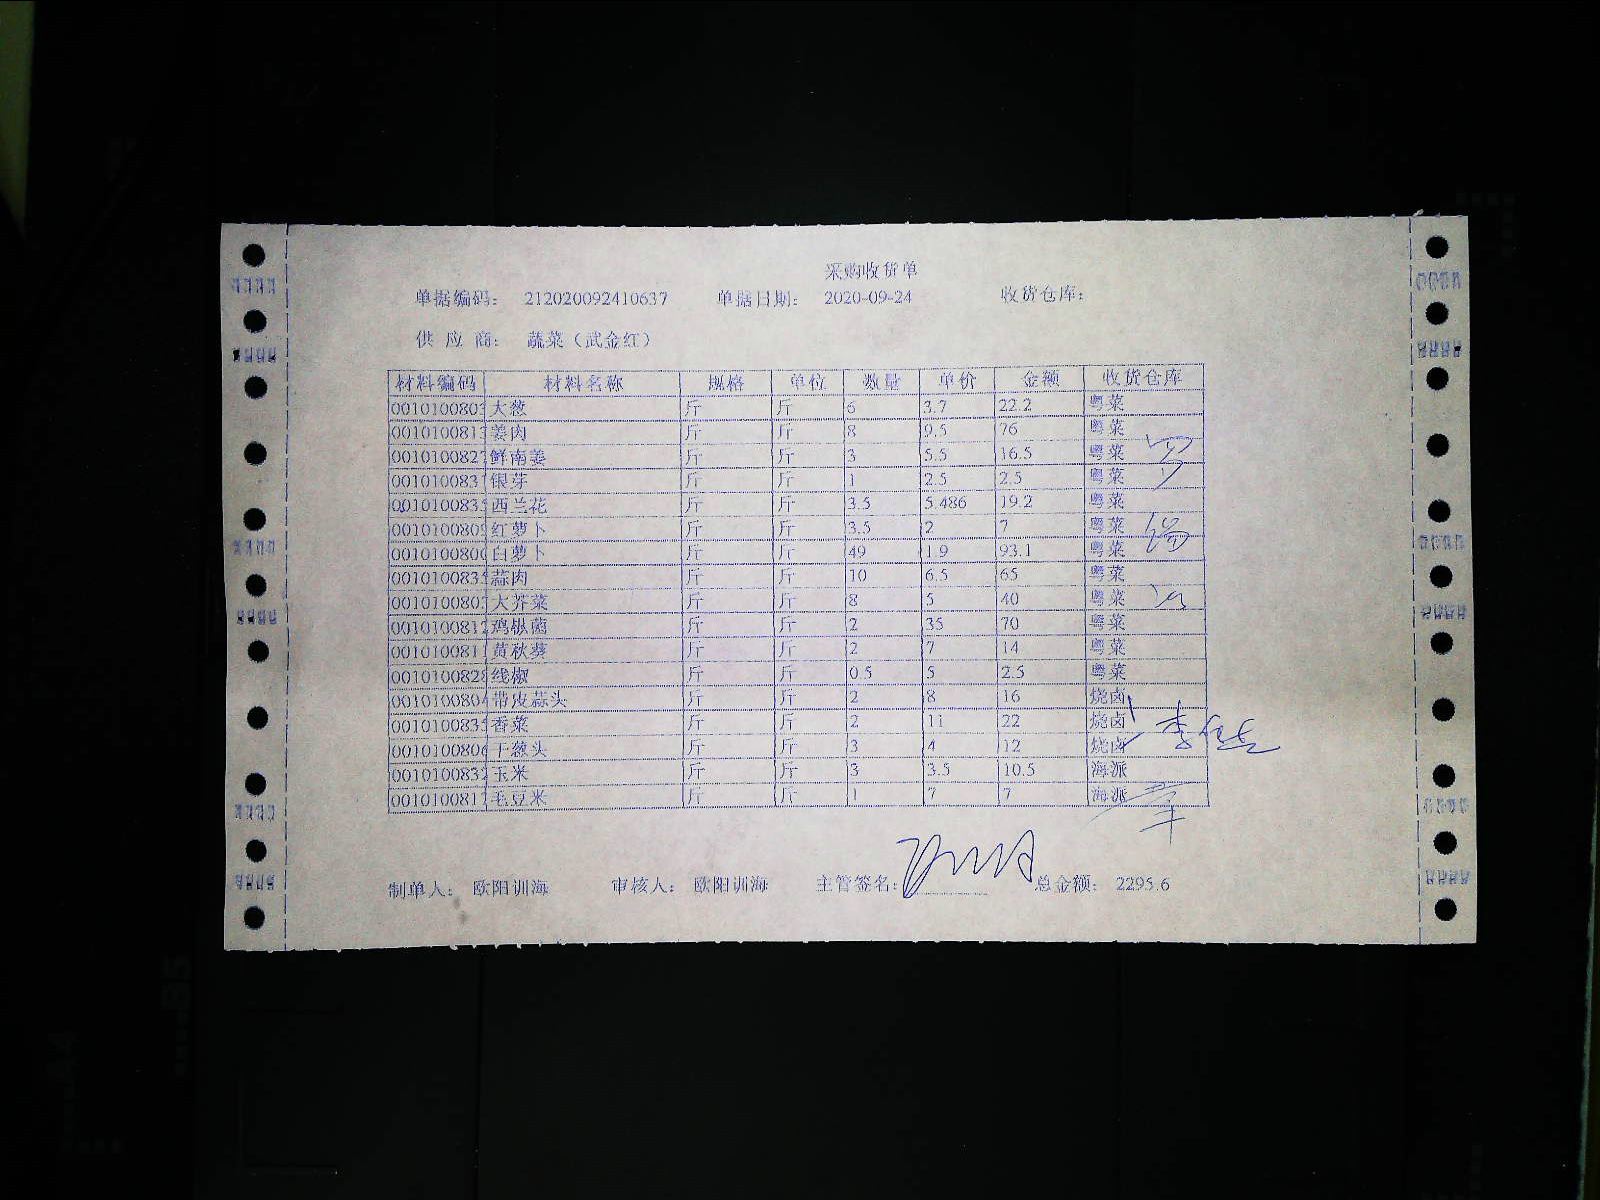 采购收货单
单据编码： 212020092410637 单据日期： 2020-09-24 收货仓库：
供 应 商： 蔬菜（武金红）
材料编码 材料名称 规格 单位 数量 单价 金额 收货仓库
0010100803 大葱 斤 斤 6 3.7 22.2 粤菜
0010100813 姜肉 斤 斤 8 9.5 76 粤菜
0010100827 鲜南姜 斤 斤 3 5.5 16.5 粤菜
0010100831 银芽 斤 斤 1 2.5 2.5 粤菜
0010100835 西兰花 斤 斤 3.5 5.486 19.2 粤菜
0010100809 红萝卜 斤 斤 3.5 2 7 粤菜
0010100800 白萝卜 斤 斤 49 1.9 93.1 粤菜
0010100835 蒜肉 斤 斤 10 6.5 65 粤菜
0010100803 大芥菜 斤 斤 8 5 40 粤菜
0010100812 鸡枞菌 斤 斤 2 35 70 粤菜
0010100811 黄秋葵 斤 斤 2 7 14 粤菜
0010100828 线椒 斤 斤 0.5 5 2.5 粤菜
0010100804 带皮蒜头 斤 斤 2 8 16 烧卤
0010100835 香菜 斤 斤 2 11 22 烧卤
0010100806 干葱头 斤 斤 3 4 12 烧卤
0010100832 玉米 斤 斤 3 3.5 10.5 海派
0010100817 毛豆米 斤 斤 1 7 7 海派
制单人： 欧阳训海 审核人： 欧阳训海 主管签名： 总金额： 2295.6